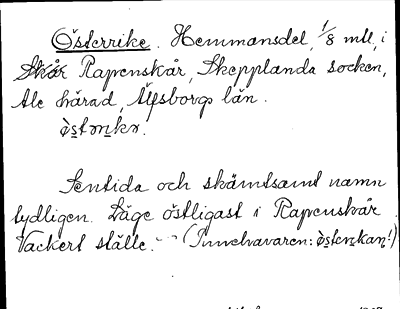 Österrike. Hemmansdel, 1/8 mtl, i
Skår Rapenskår, Skepplanda socken,
Ale härad, Älfsborgs län.
Sentida och skämtsamt namn
tydligen. Läge östligast i Rapenskår.
Vackert ställe. – (Innehavaren: